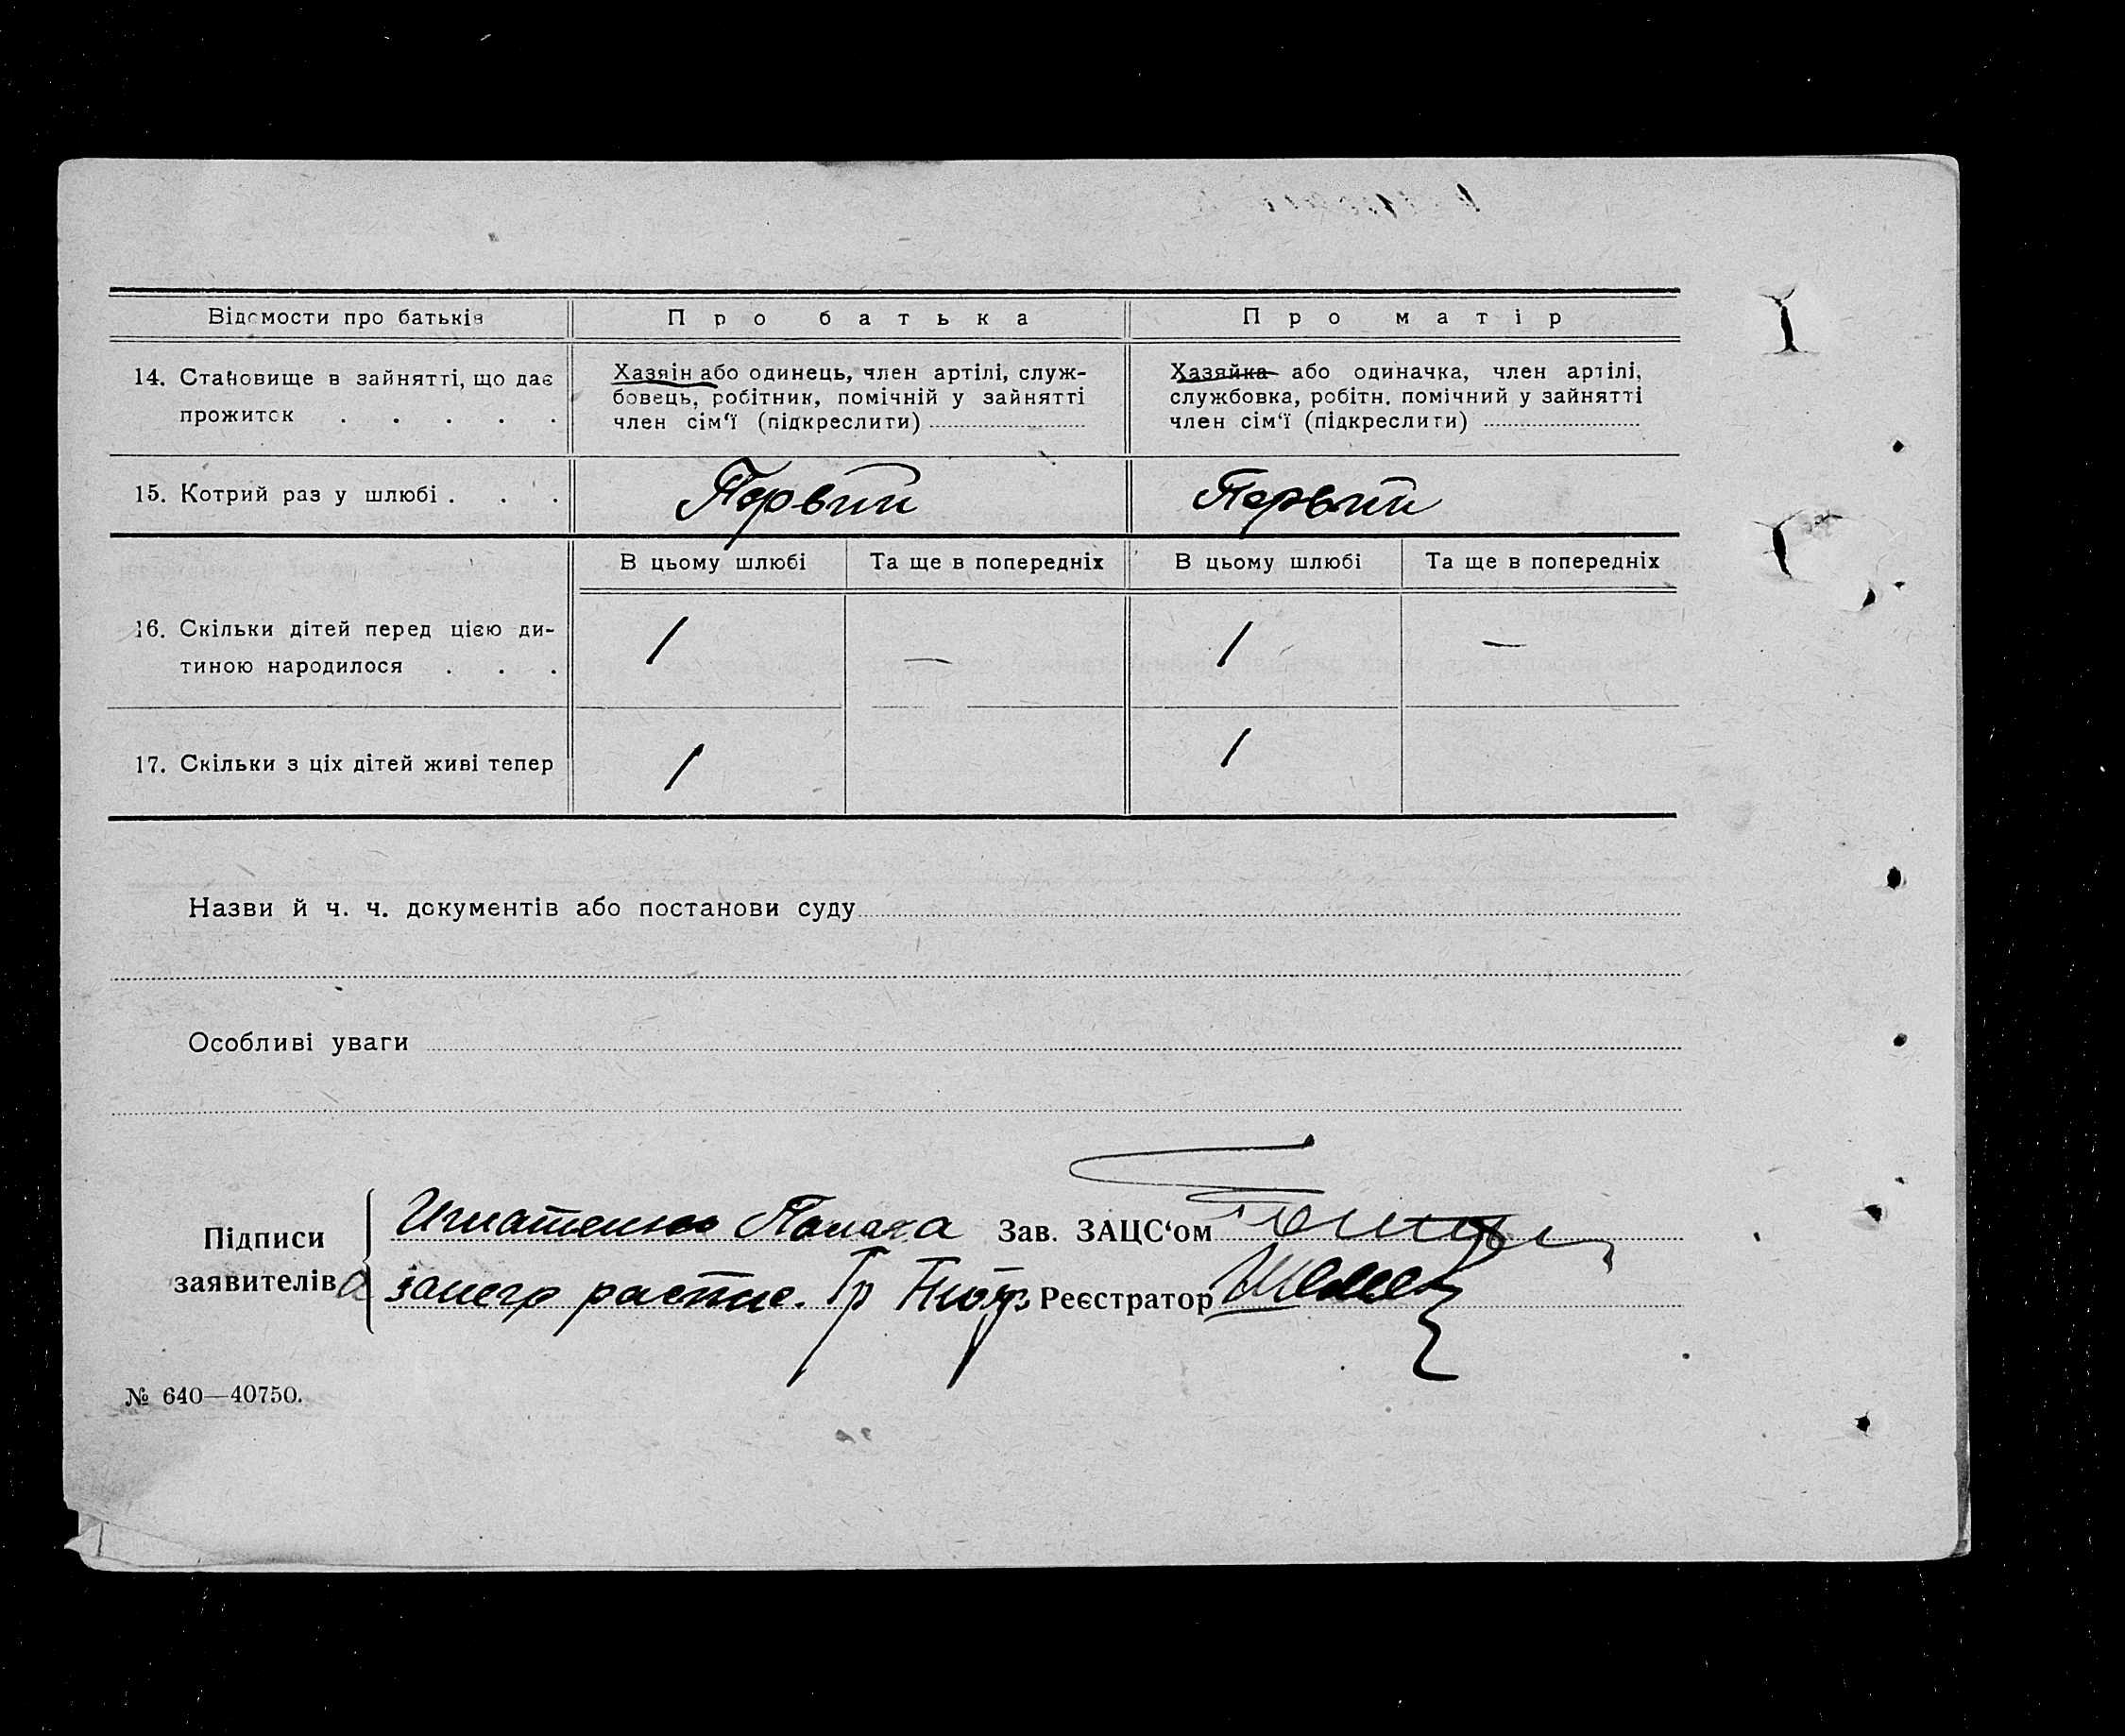 Відомости про батьків Про батька Про матір
14. Становище в зайнятті, що дає
прожиток . . . . .
Хазяїн або одинець, член артілі, служ-
бовець, робітник, помічній у зайнятті
член сім'ї (підкреслити)
Хазяйка або одиначка, член артілі,
службовка, робітн. помічний у зайнятті
член сім'ї (підкреслити)
15. Котрий раз у шлюбі . . . Первий Первий
В цьому шлюбі Та ще в попередніх В цьому шлюбі Та ще в попередніх
16. Скільки дітей перед цією ди-
тиною народилося . . . 1 — 1 —
17. Скільки з ціх дітей живі тепер 1 1
Назви й ч. ч. документів або постанови суду
Особливі уваги
Підписи
заявителів
Игнатенко Зав. ЗАЦС'ом
Реєстратор
№ 640—40750.